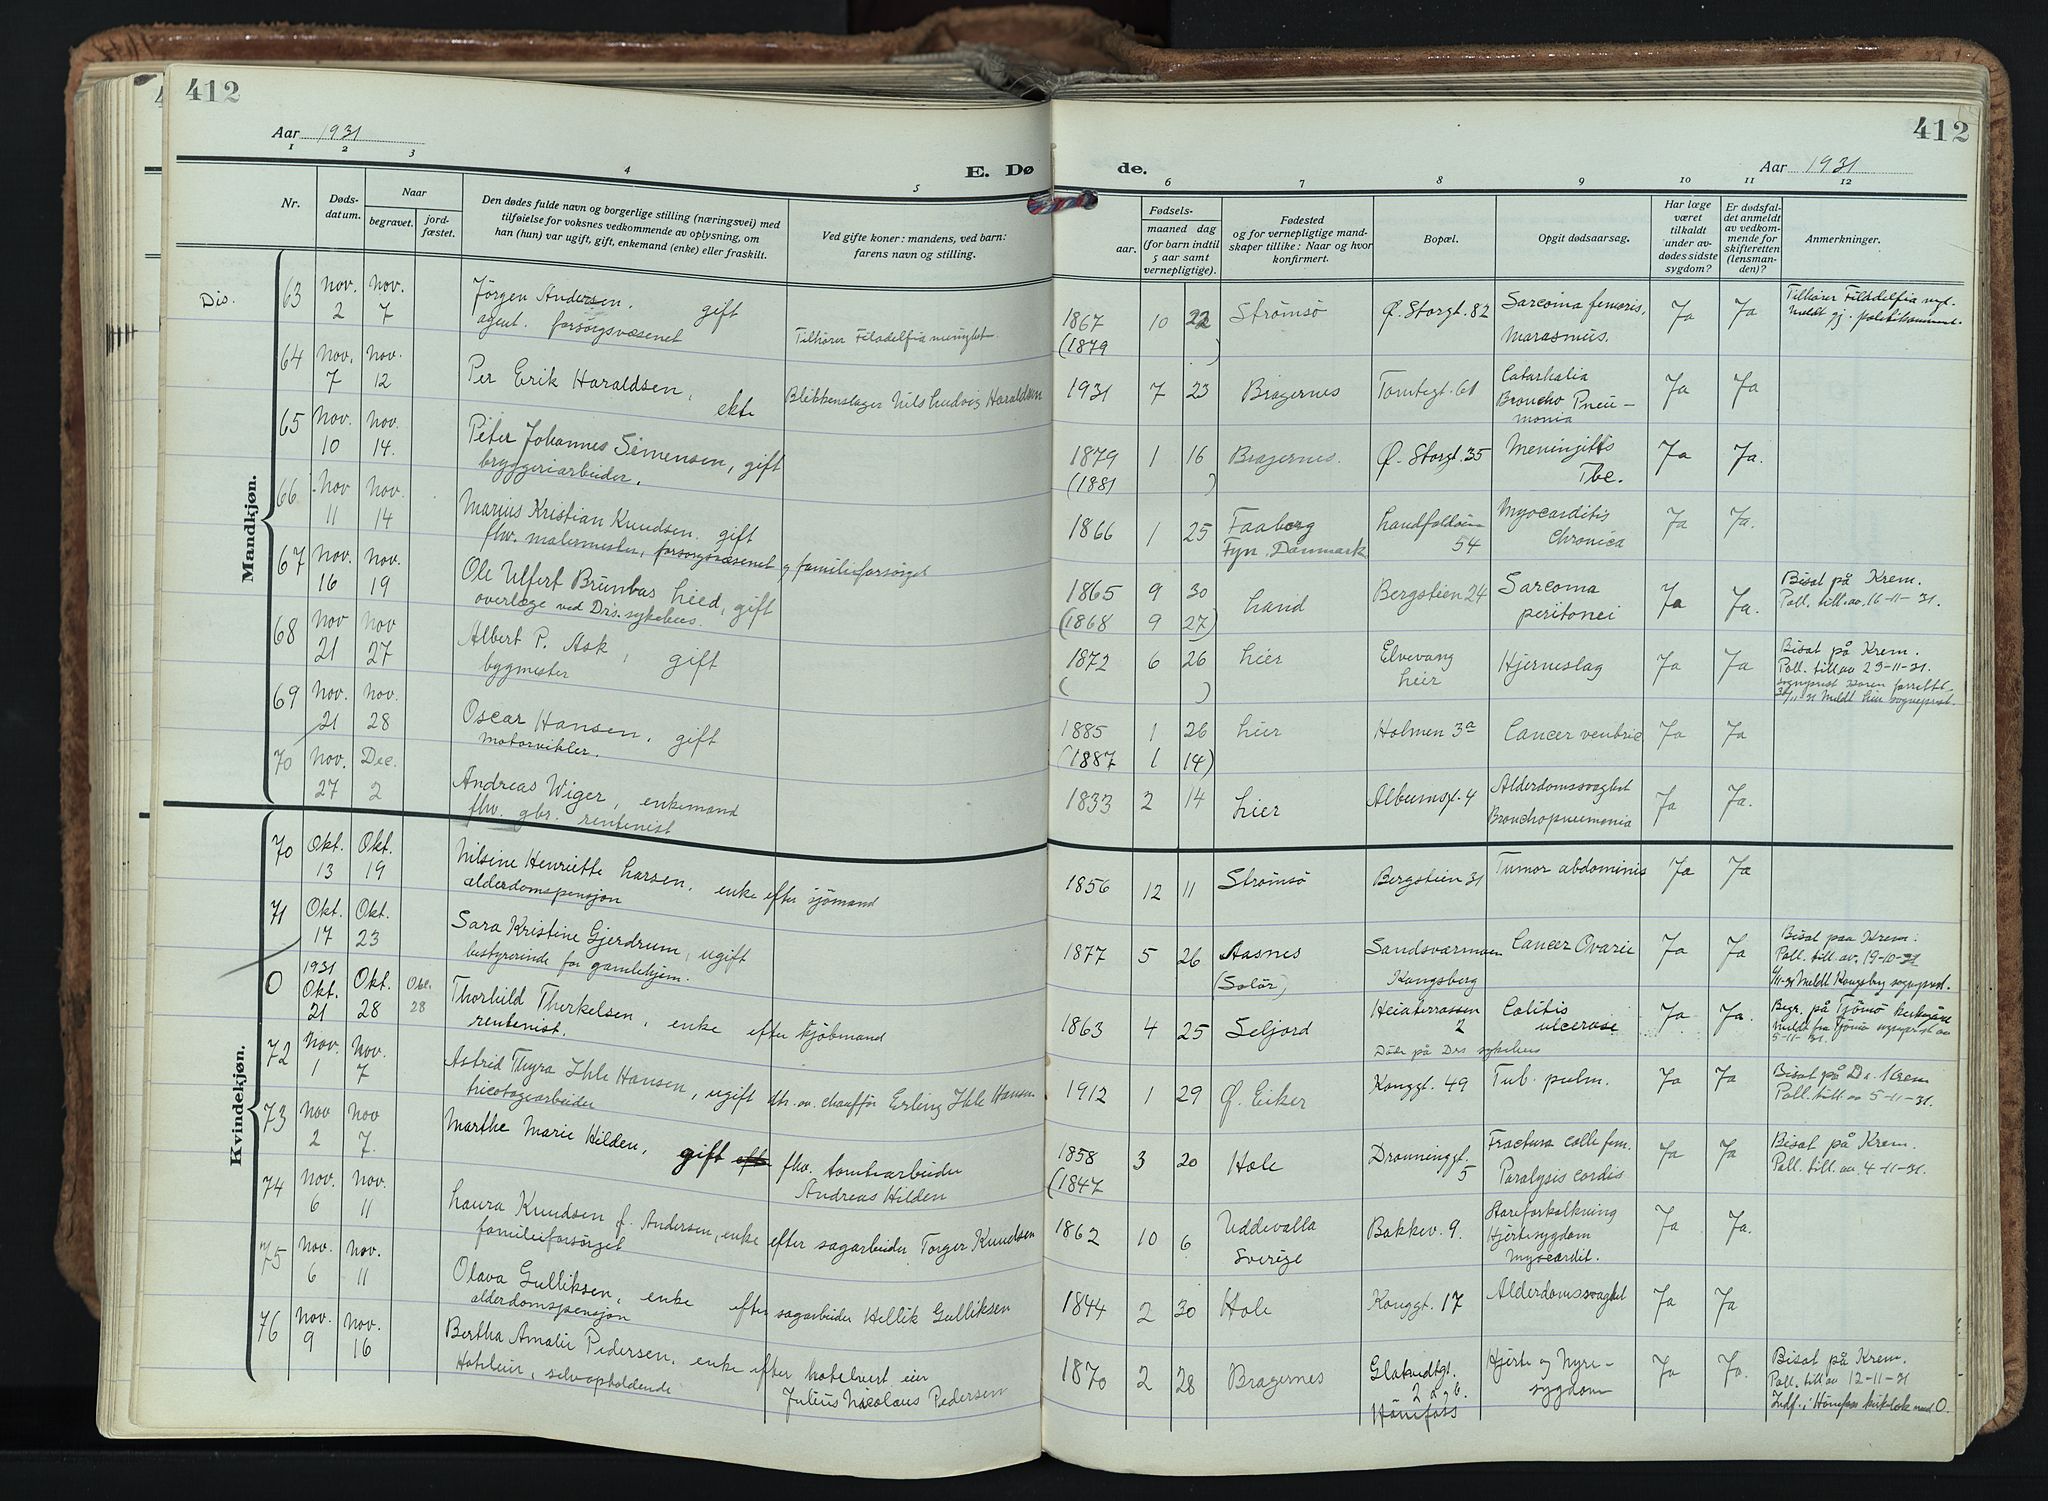 412
Aar 1931
E. Dø
1 2 3 4 5
Nr.
Dødsdatum.
Naar
begravet. jordfæstet.
Den dødes fulde navn og borgerlige stilling (næringsvei) med
tilføielse for voksnes vedkommende av oplysning, om
han (hun) var ugift, gift, enkemand (enke) eller fraskilt.
Ved gifte koner: mandens, ved barn:
farens navn og stilling.
Mandkjøn.
63 Nov. 2 Nov. 7 Jörgen Andersen, gift
agent. forsörgsvæsenet Tilhører Filadelfia menighet.
64 Nov. 7 Nov. 12 Per Erik Haraldsen, ekte Blikkenslager Nils Ludvig Haraldsen
65 Nov. 10 Nov. 14. Peter Johannes Simensen, gift
bryggeriarbeider.
66 Nov 11 Nov. 14 Marius Kristian Knudsen, gift
fhv. malermester, forsorgsvæsenet og familieforsörget
67 Nov. 16 Nov. 19 Ole Ulfert Brunbas Lied, gift
overlæge ved Drs. sykehus.
68 Nov 21 Nov 27 Albert P. Ask, gift
bygmester
69 Nov. 21 Nov. 28 Oscar Hansen, gift
motorvikler.
70 Nov. 27 Dec. 2 Andreas Wiger, enkemand
fhv. gbr. rentenist
Kvindekjøn.
70 Okt. 13 Okt. 19 Nilsine Henriette Larsen, enke efter sjömand
alderdomspensjon
71 Okt. 17 Okt. 23 Sara Kristine Gjerdrum, ugift
bestyrerinde for gamlehjem.
0 1931 Okt. 21 Okt. 28 Okt. 28 Thorbild Therkelsen, enke efter kjöbmand
rentenist.
72 Nov. 1 Nov. 7 Astrid Thyra Ihle Hansen, ugift dtr. av chaufför Erling Ihle Hansen
tricotagearbeider
73 Nov 2 Nov 7. Marthe Marie Hilden, gift fhv. tomtearbeider
Andreas Hilden
74 Nov. 6 Nov. 11 Laura Knudsen f. Andersen, enke efter sagarbeider Torger Knudsen
familieforsörget
75 Nov. 6 Nov. 11 Olava Gulliksen, enke efter sagarbeider Hellik Gulliksen
alderdomspensjon
76 Nov. 9 Nov. 16 Bertha Amalie Pedersen, enke efter hotelvert eier
Hoteleier, selvopholdende Julius Nicolaus Pedersen
412
de.
Aar 1931
6 7 8 9 10 11 12
Fødsels-
aar. maaned dag
(for barn indtil
5 aar samt
vernepligtige).
Fødested
og for vernepligtige mandskaper tillike: Naar og hvor
konfirmert.
Bopæl.
Opgit dødsaarsag.
Har læge
været
tilkaldt
under avdødes sidste
sygdom?
Er dødsfaldet anmeldt
av vedkommende for
skifteretten
(lensmanden)?
Anmerkninger.
1867 10 22 Strömsö Ø. Storgt. 82 Sarcoma femoris, Ja Ja Tilhører Filadelfia
(1879 ) Marasmus.
1931 7 23 Bragernes Tomtegt. 61 Catarhalia Ja Ja
Broncho Pneumonia
1879 1 16 Bragernes. Ø. Storgt. 35 Meningitis Ja Ja.
(1881 ) Tbc.
1866 1 25 Faaborg Landfaldöien Myocarditis Ja Ja.
Fyn, Danmark 54 Chronica
1865 9 30 Lund Bergstien 24 Sarcoma Ja Ja. Bisat på Krem.
(1868 9 27) peritonei Poll. till. av. 16-11-31.
1872 6 26 Lier Elvevang Hjerneslag Ja Ja Bisat på Krem.
( ) Lier Poll. till av 23-11-31.
sogneprest forrettet.
Meldt Lier sogneprest.
1885 1 26 Lier Holmen 3a Cancer ventric Ja Ja
(1887 1 14)
1833 2 14 Lier Albumsgt. 4 Alderdomssvaghet Ja Ja.
Bronchopneumonia
1856 12 11 Strömsö Bergstien 31 Tumor abdominis Ja Ja
1877 5 26 Aasnes Sandsværmoen Cancer Ovarie Ja Ja Bisat paa Krem.
(Solör) Kongsberg Poll. till av. 19-10-31
Meldt Kongsberg sogneprest.
1863 4 25 Seljord Heiaterrassen Colitis Ja Ja. Begr. på Tjömö kirkegård
2 ulcerose meldt fra Tjömö sogneprest av
Döde på Drs sykehus 5-11-31.
1912 1 29 Ø. Eiker Konggt. 49 Tub. pulm. Ja Ja Bisat på Dr. Krem
Poll. till av 5-11-31.
1858 3 20 Hole Dronninggt. Fractura colli fem. Ja Ja Bisat på Krem.
(1847 5 Paralysis cordis Poll. till. av. 4-11-31.
1862 10 6 Uddevalla Bakkev. 9. Åreforkalkning Ja Ja.
Sverige Hjertesygdom
Myocardit.
1844 2 30 Hole Konggt. 17 Alderdomssvaghet Ja Ja
1870 2 28 Bragernes Glatvedtgt. Hjerte og Nyre- Ja Ja. Bisat på Krem.
2 a & b. sygdom Poll. till av 12-11-31
Hönefoss Indf. i Hönefoss kirkebok med 0.